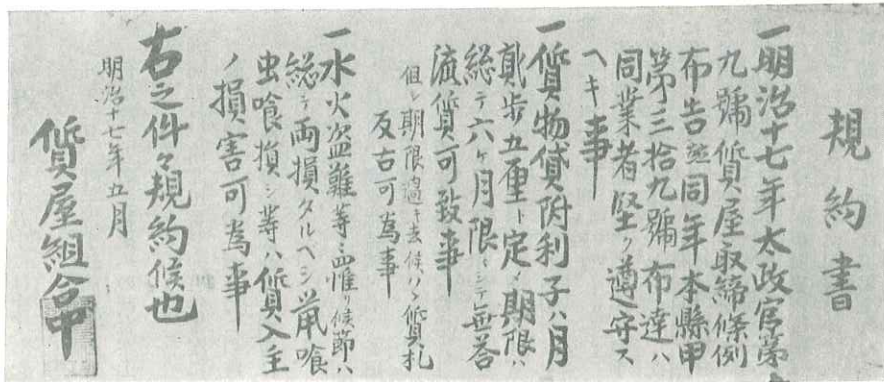 規約書
一明治十七年太政官第
九號質屋取締條例
布告並同年本縣甲
第三拾九號布達ハ
同業者堅ク遵守ス
ヘキ事
一質物貸附利子ハ月
貳歩五厘ト定メ期限ハ
総テ六ヶ月限トシテ無答
流質可致事
但シ期限過キ去候ハヽ質札
反古可為事
一水火盗難等ニ罹リ候節ハ
総テ両損タルヘシ鼠喰
虫喰損シ等ハ質入主
ノ損害可為事
右之件々規約候也
明治十七年五月
質屋組合中